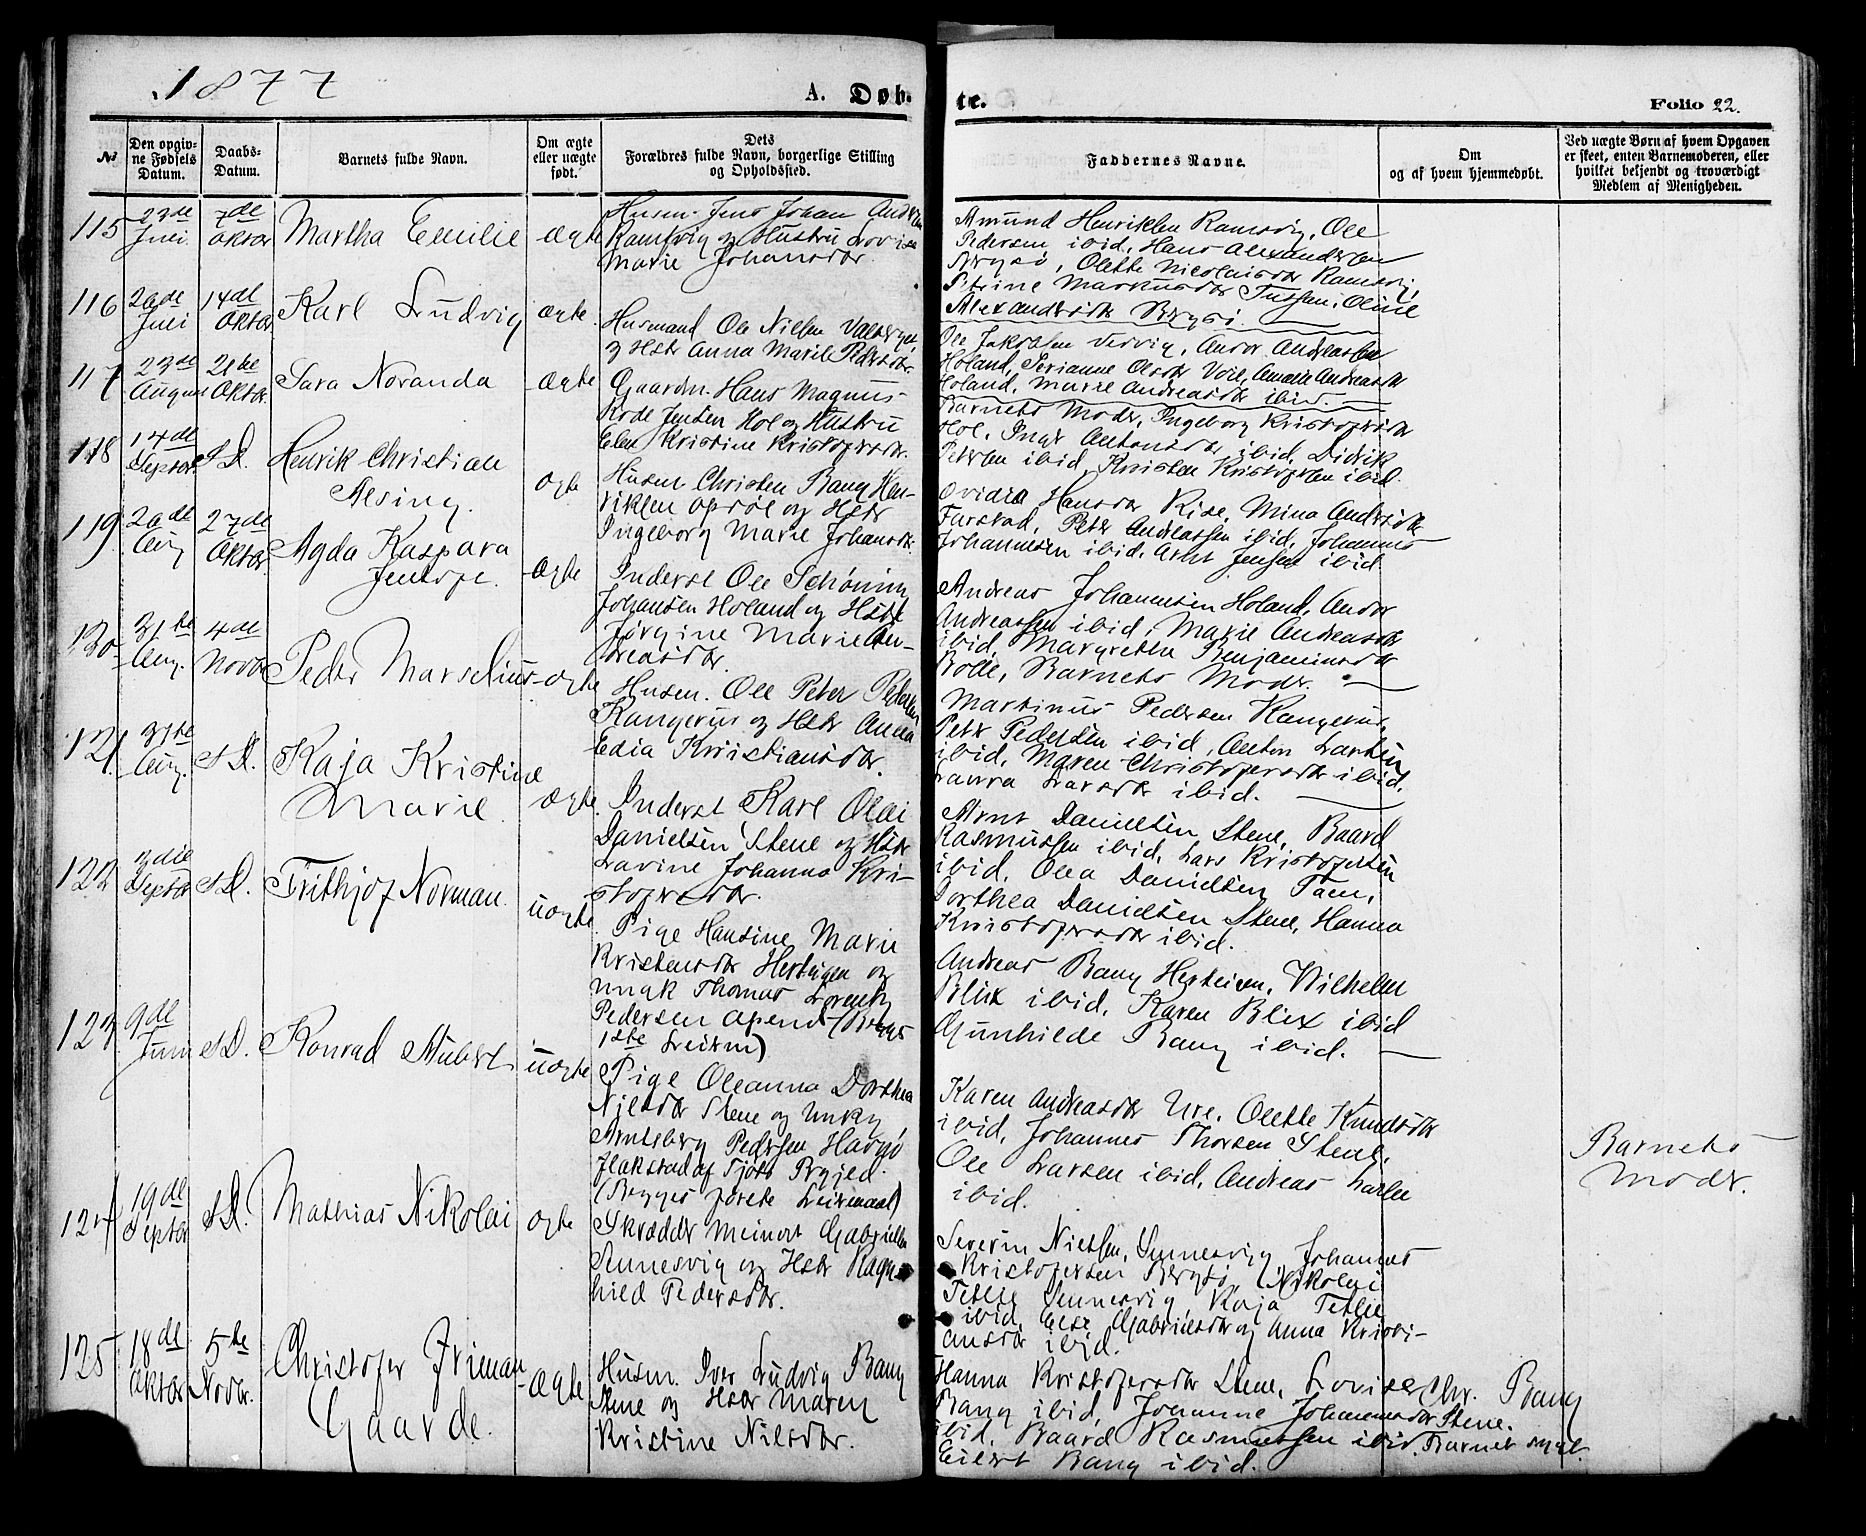 1877
A. Døb-
te.
Folio 22.
№
Den opgiv-
ne Fødsels
Datum.
Daabs-
Datum.
Barnets fulde Navn.
Om ægte
eller uægte
født.
Dets
Forældres fulde Navn, borgerlige Stilling
og Opholdssted.
Faddernes Navne.
Om
og af hvem hjemmedøbt.
Ved uægte Børn af hvem Opgaven
er skeet, enten Barnemoderen, eller
hvilket bekjendt og troværdigt
Medlem af Menigheden.
115
23de
Juli
7de
Oktbr
Martha Emilie
ægte
Husm. Jens Johan
Ramsvig og Hustru Lovise
Marie Johansdr.
Amund Henriksen Ramsvig, Ole
Pedersen ibid, Hans Alexandersen
Bergsø, Olette Nicolaisdr Ramsvig,
Petrine Markusdr Tussen, Oline
Alexandersdr Bergsø.
116
Juli
14de
Oktbr
Karl Ludvig
ægte.
Husmand Ole Nilsen
og Hstr Anna Marie Pedersdr
Ole Jakobsen Vervig, Andor Andreassen
Holand, Serianne Olsdr Voie, Amalie Andreasdr
Holand, Marie Andreasdr ibid.
117
23de
August
21de
Oktbr
Sara Noranda
ægte
Gaardm. Hans Magnus
Rode Jensen Hol og Hustru
Elen Kristine Kristofersdr.
Barnets Moder, Ingeborg Kristofersdr
Hol, Inger Antonsdr ibid, Didrik
Petersen ibid, Kristen Kristofersen ibid.
118
14de
Septbr
s D.
Henrik Christian
Alsing.
ægte
Husm Christen Bang Hen-
riksen Opsøl og Hstr
Ingeborg Marie Johansdr.
Hansdr Rise, Mina Andersdr
Farstad, Peter Andreassen ibid, Johannes
Johannesen ibid, Arnt Jensen ibid
119
Aug
27de
Oktbr.
Agda Kaspara
Jentofe.
ægte
Inderst Ole Schøning
Johansen Holand og Hstr
Jørgine Marie An-
dreasdr.
Andreas Johannesen Holand, Andor
Andreassen ibid, Marie Andreasdr
ibid, Margrethe Benjaminsdr
Bolle, Barnets Moder.
120
31te
Aug.
4de
Novbr
Peder Marselius
ægte
Husm. Ole Peter Pedersen
Kangerur og Hstr Anna
Edia Kristiansdr.
Martinus Pedersen Kangerur,
Peter Pedersen ibid, Anton Larsen
ibid, Maren Christofersdr ibid,
Laura Larsdr ibid.
121.
31te
Aug.
s D.
Kaja Kristine
Marie
ægte.
Inderst Karl Olai
Danielsen Stene og Hstr
Lavine Johanna Kri-
stofersdr.
Arnt Danielsen Stene, Baard
Rasmussen ibid, Lars Kristofersen
ibid, Olea Danielsen Taen,
Dorthea Danielsen Stene, Hanna
Kristofersdr ibid.
122
3die
Septbr
s D.
Frithjof Norman.
uægte
Pige Hansine Marie
Kristensdr Herteigen og
Ungk Thomas Lorentz
Pedersen Opend (Begges
1ste Leierm)
Andreas Bang Herteigen, Wilhelm
Blix ibid, Karen Blix ibid
Gunhilde Bang ibid.
123
9de
Juni
s D.
Konrad Aubert
uægte
Pige Oleanna Dorthea
Nilsdr Stene og Ungk
Arntsberg Pedersen Havsø
Flakstad af Tjøtt Prgjed.
(Begges første Leiermaal)
Karen Andreasdr Ure, Olette Knudsdr
ibid, Johannes Thorsen Stene,
Ole Larsen ibid, Andreas Larsen
ibid.
Barnets
Moder.
124
19de
Septbr
s D.
Mathias Nikolai
ægte
Skrædder Meinert Gabrielsen
Sennesvig og Hstr Ragn-
hild Pedersdr.
Severin Nielsen, Sennesvig, Johannes
Kristofersen Bergsø, Nikolai
Tetlie Sennesvig, Kaja Tetlie
ibid, Else Gabrielsdr og Anna Kristi-
ansdr ibid.
125
18de
Oktbr
5te
Novbr.
Christofer Friman
Gaarde.
ægte
Husm. Iver Ludvig Bang
Stene og Hstr Maren
Kristine Nilsdr.
Hanna Kristofersdr Stene, Lovise
Bang ibid, Johanne Johannesdr
ibid, Baard Rasmussen ibid,
Eilert Bang ibid.
Chr. Bang
Stene.
Barnet svagt.